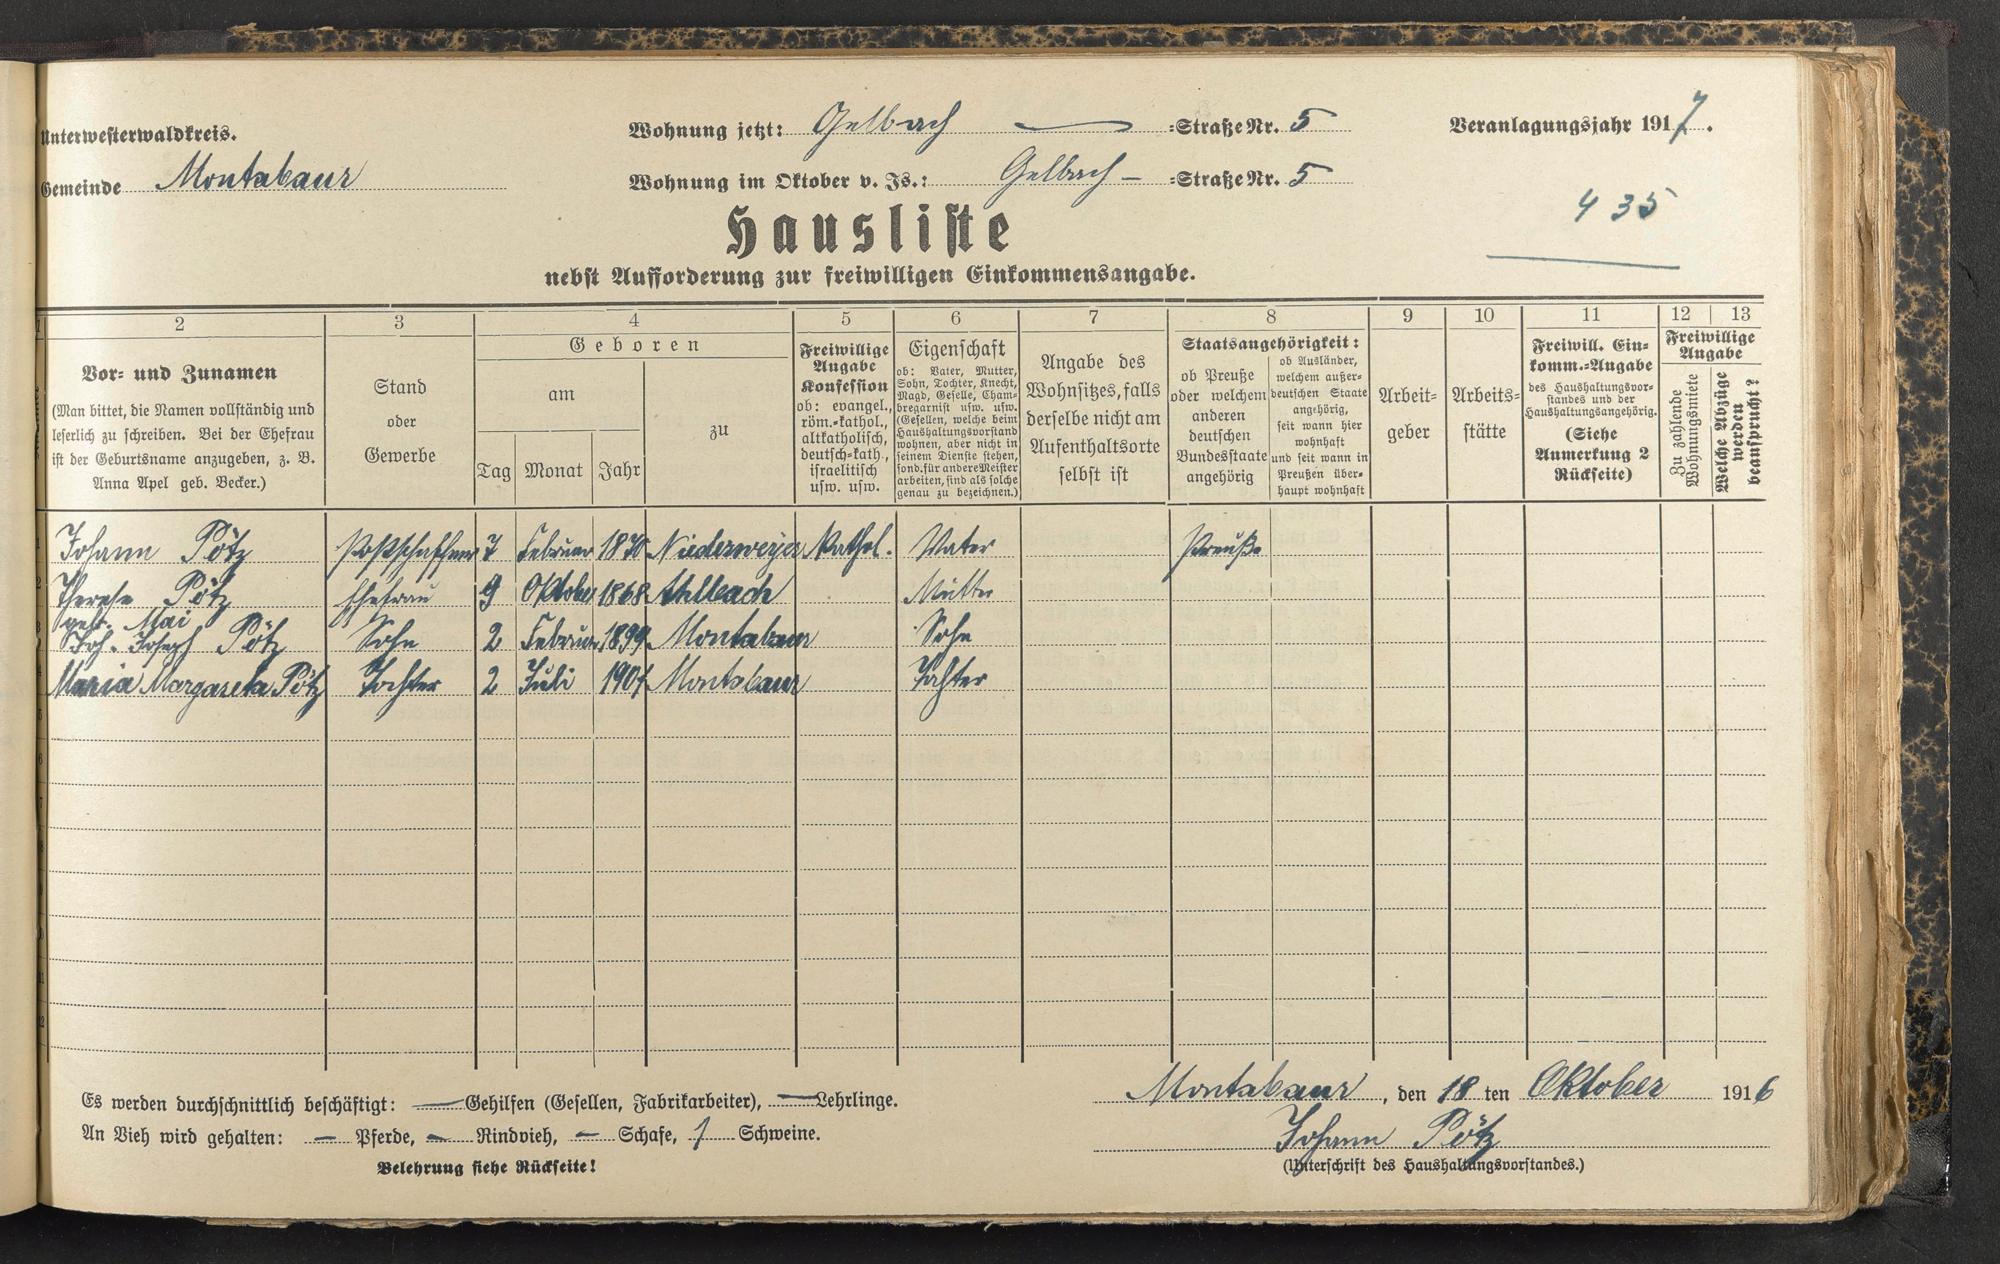 Unterwesterwaldkreis.
Gemeinde Montabaur
Wohnung jetzt: Gelbach — =Straße Nr. 5
Wohnung im Oktober v. Js.: Gelbach – =Straße Nr. 5
Veranlagungsjahr 1917.
435
Hausliste
nebst Aufforderung zur freiwilligen Einkommensangabe.
1 2 3 4 5 6 7 8 9 10 11 12 13
Vor- und Zunamen
(Man bittet, die Namen vollständig und
leserlich zu schreiben. Bei der Ehefrau
ist der Geburtsname anzugeben, z. B.
Anna Apel geb. Becker.)
Stand
oder
Gewerbe
Geboren
am
Tag Monat Jahr
zu
Freiwillige
Angabe
Konfession
ob: evangel.,
röm.-kathol.,
altkatholisch,
deutsch-kath.,
israelitisch
usw. usw.
Eigenschaft
ob: Vater, Mutter,
Sohn, Tochter, Knecht,
Magd, Geselle, Cham-
bregarnist usw. usw.
(Gesellen, welche beim
Haushaltungsvorstand
wohnen, aber nicht in
seinem Dienste stehen,
sond. für andere Meister
arbeiten, sind als solche
genau zu bezeichnen.)
Angabe des
Wohnsitzes, falls
derselbe nicht am
Aufenthaltsorte
selbst ist
Staatsangehörigkeit:
ob Preuße
oder welchem
anderen
deutschen
Bundesstaate
angehörig
ob Ausländer,
welchem außer-
deutschen Staate
angehörig,
seit wann hier
wohnhaft
und seit wann in
Preußen über-
haupt wohnhaft
Arbeit-
geber
Arbeits-
stätte
Freiwill. Ein-
komm.-Angabe
des Haushaltungsvor-
standes und der
Haushaltungsangehörig.
(Siehe
Anmerkung 2
Rückseite)
Freiwillige
Angabe
Zu zahlende
Wohnungsmiete
Welche Abzüge
werden
beansprucht?
Johann Pötz Postschaffner 7 Februar 1870 Niederweyer Kathol. Vater Preuße
Therese Pötz Ehefrau 9 Oktober 1868 Mutter
geb. Mai
Joh. Joseph Pötz Sohn 2 Februar 1899 Montabaur Sohn
Maria Margareta Pötz Tochter 2 Juli 1901 Montabaur Tochter
Es werden durchschnittlich beschäftigt: — Gehilfen (Gesellen, Fabrikarbeiter), — Lehrlinge.
An Vieh wird gehalten: – Pferde, – Rindvieh, – Schafe, 1 Schweine.
Belehrung siehe Rückseite!
Montabaur, den 18 ten Oktober 1916
Johann Pötz
(Unterschrift des Haushaltungsvorstandes.)